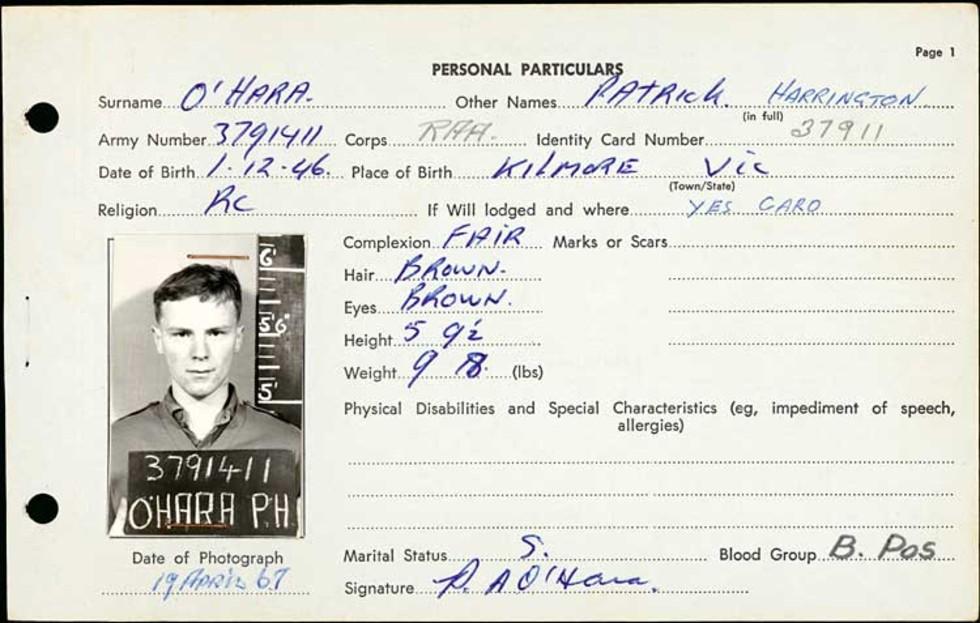 Page 1
PERSONAL PARTICULARS
Surname O'HARA. Other Names PATRICK. HARRINGTON
(in full)
Army Number 3791411 Corps RAA. Identity Card Number 37911
Date of Birth 1.12.46. Place of Birth KILMORE VIC
(Town/State)
Religion RC If Will lodged and where YES CARO
Complexion FAIR Marks or Scars
Hair BROWN.
Eyes BROWN.
Height 5 9½
Weight 9 8 (lbs)
Physical Disabilities and Special Characteristics (eg, impediment of speech,
allergies)
6'
5'6"
5'
3791411
O'HARA P.H
Date of Photograph
19 APRIL 67
Marital Status S. Blood Group B. Pos
Signature P. H O'Hara.